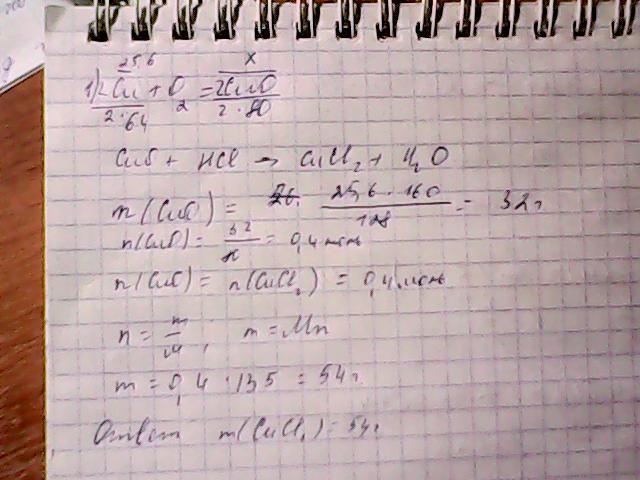 25,6 x
1) 2Cu + O2 = 2CuO
2·64 2·80
CuO + HCl → CuCl2 + H2O
m(CuO) = 25,6 · 160 / 128 = 32г
n(CuO) = 32 / = 0,4 моль
n(CuO) = n(CuCl2) = 0,4 моль
n = m/M; m = Mn
m = 0,4 · 135 = 54г
Ответ m(CuCl2) = 54г